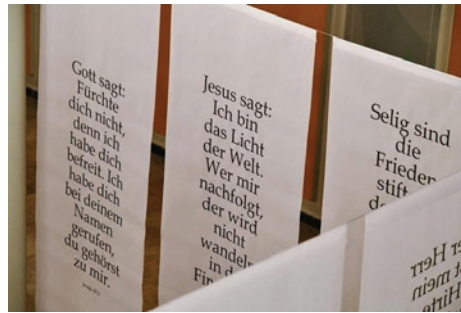 Gott sagt:
Fürchte
dich nicht,
denn ich
habe dich
befreit. Ich
habe dich
bei deinem
Namen
gerufen,
du gehörst
zu mir.
Jesus sagt:
Ich bin
das Licht
der Welt.
Wer mir
nachfolgt,
der wird
nicht
wandeln
in d
Fin
Selig sind
die
Frieden
stift
d
er Herr
t mein
Hirte